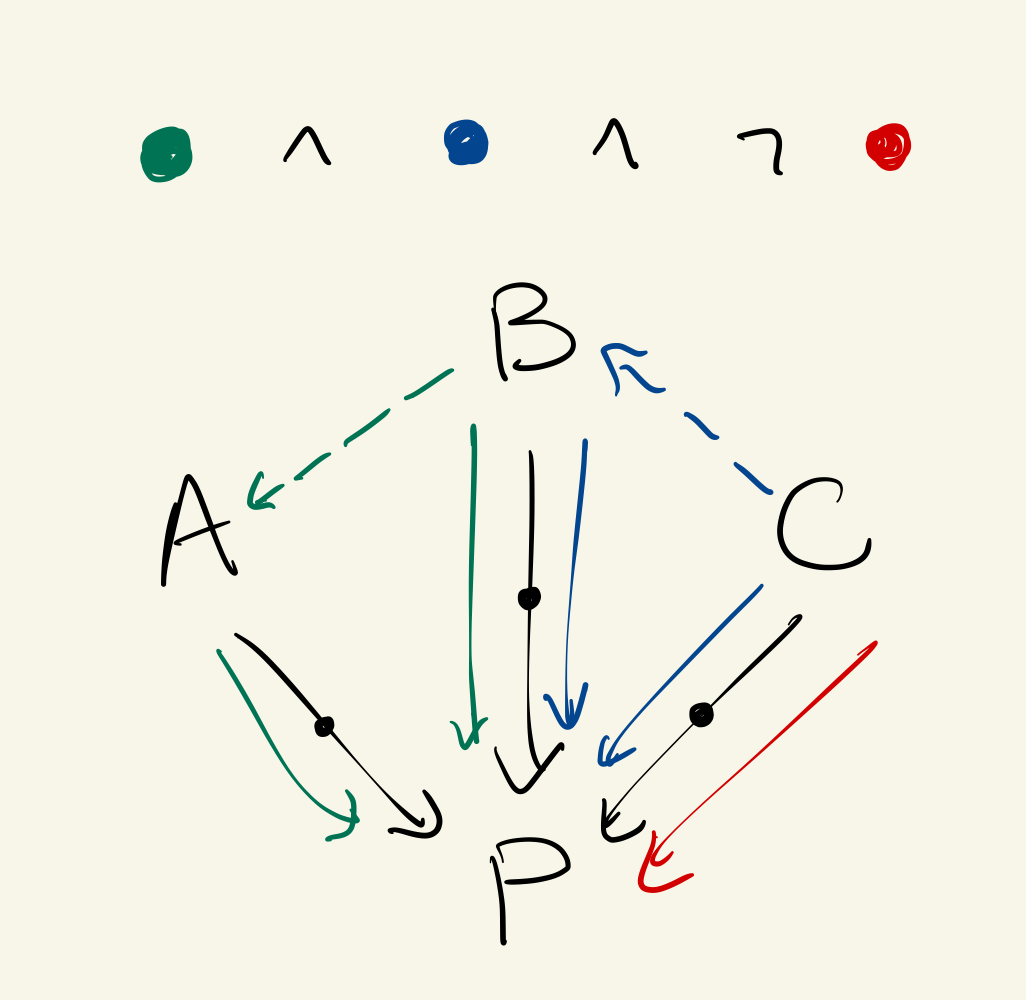 ∧ ∧ ¬
B
A C
P